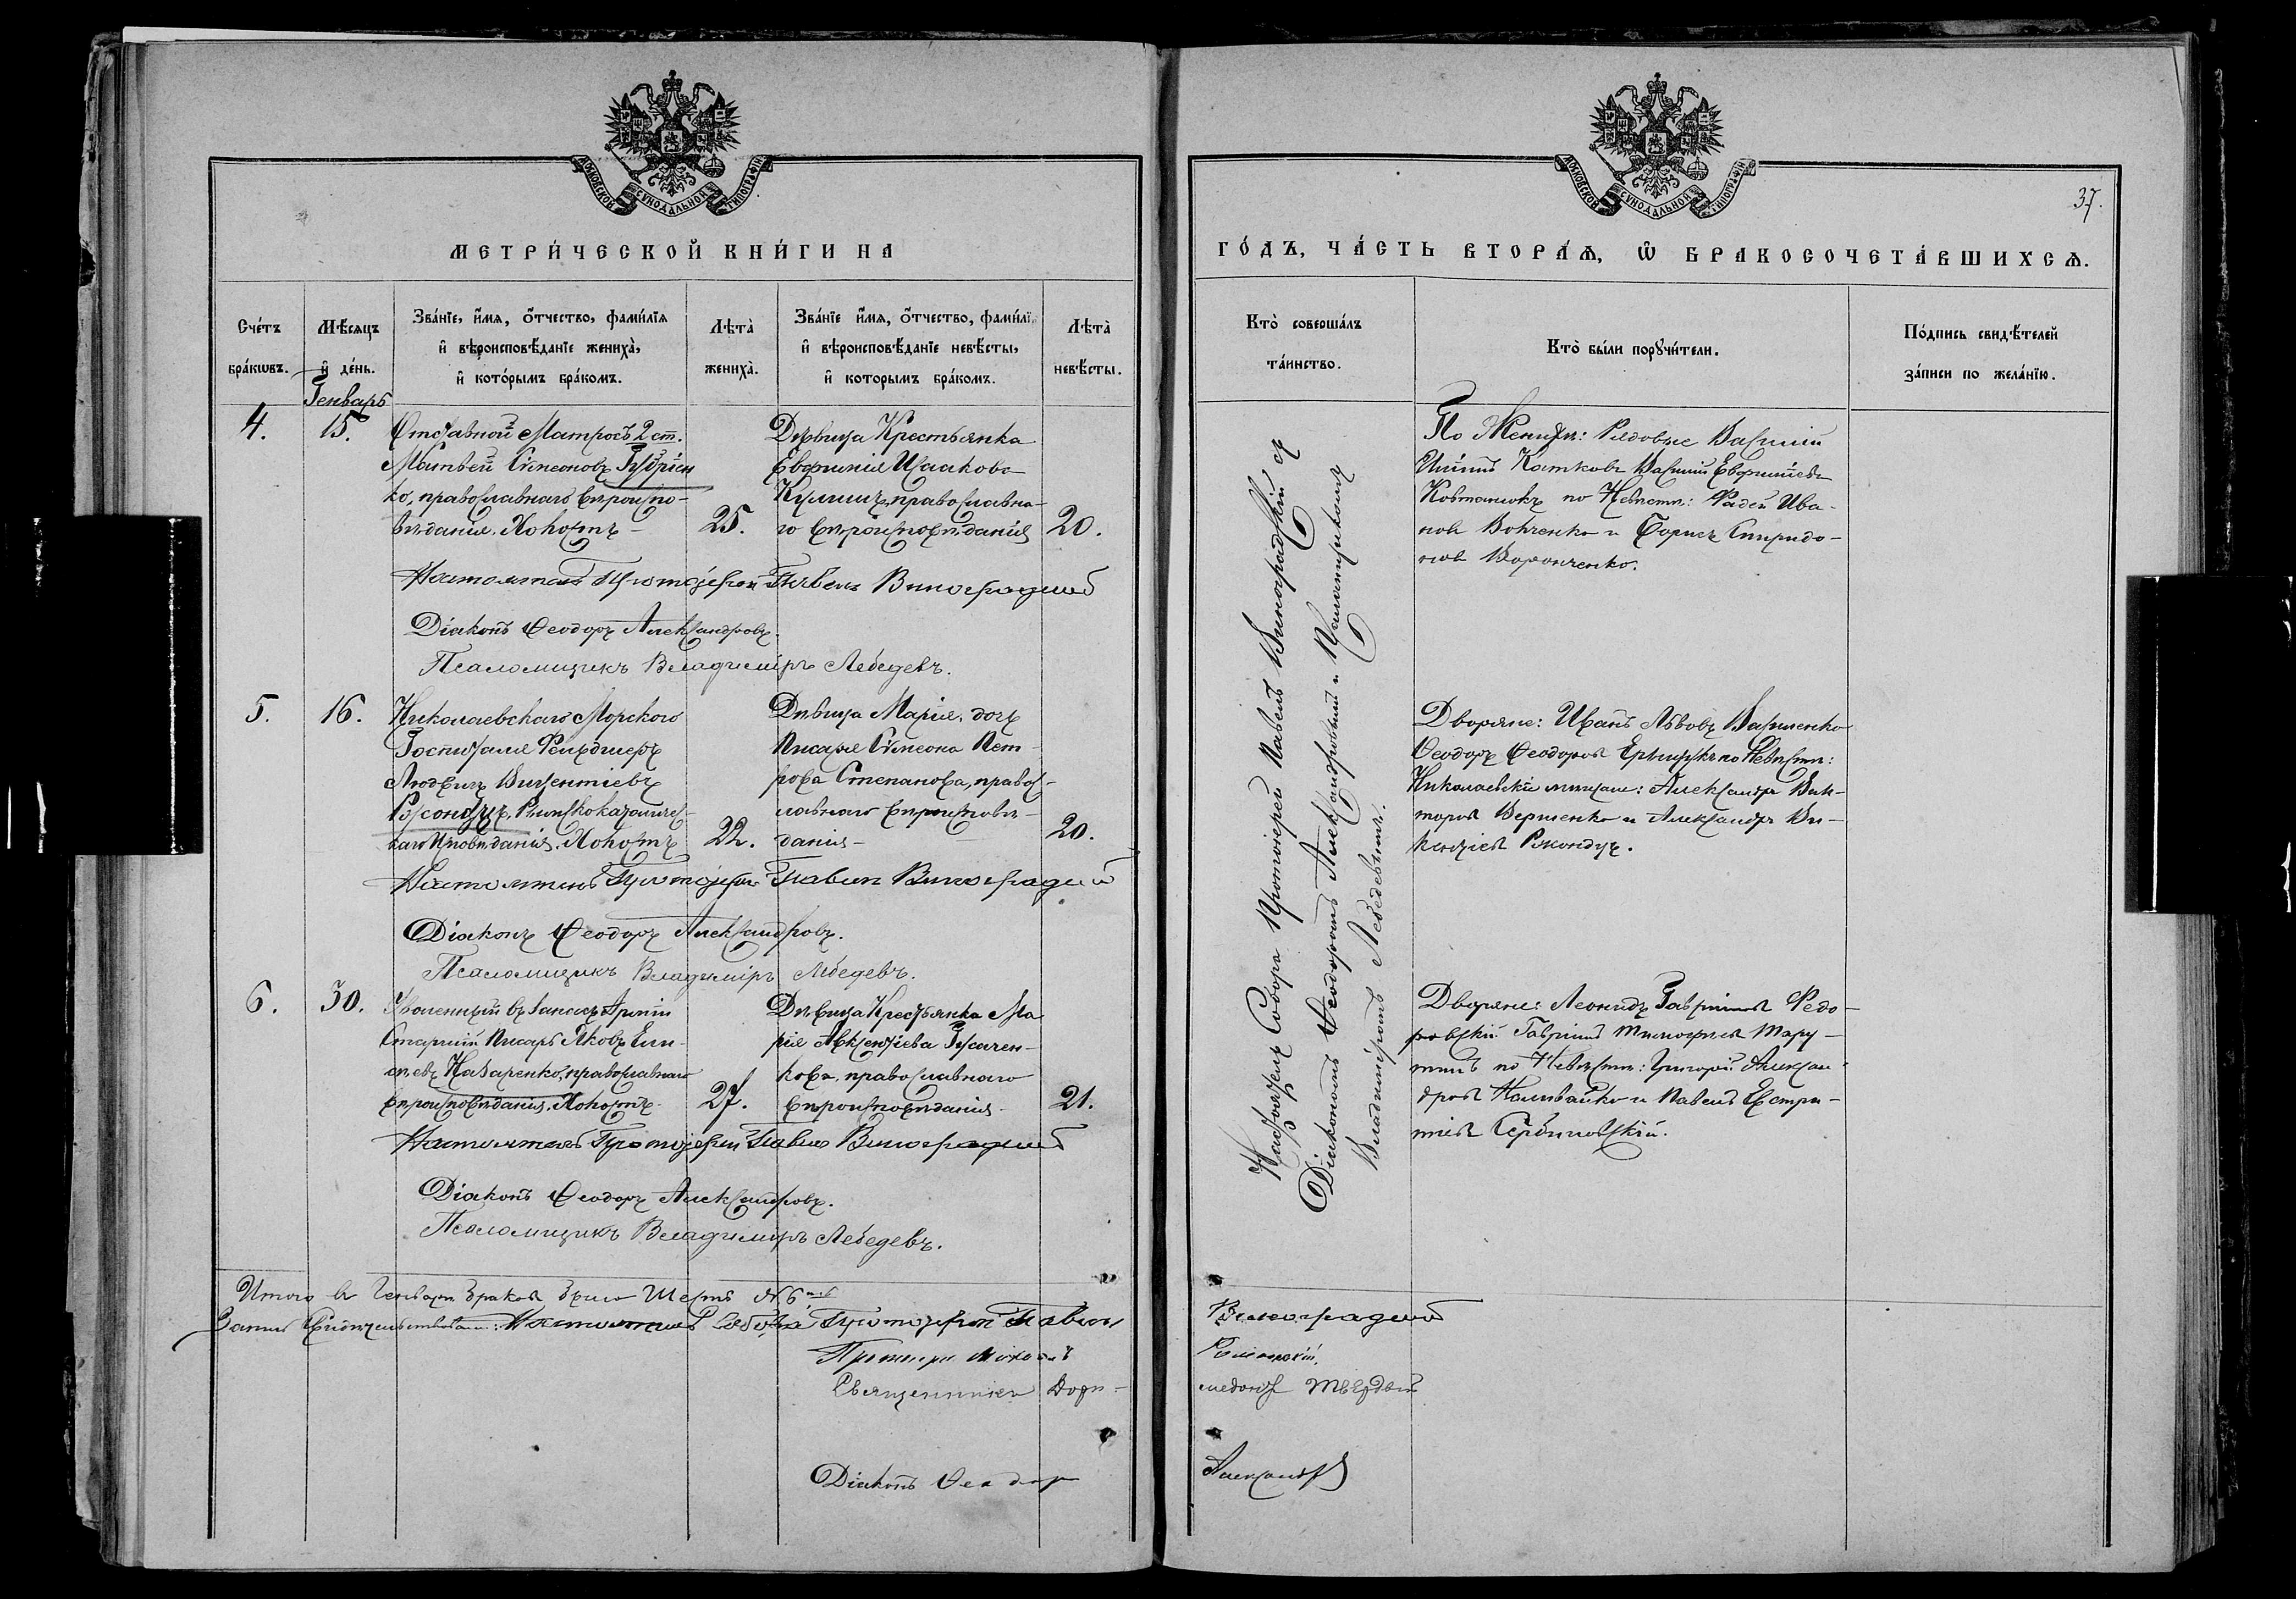 МОСКОВСКОЙ СѴНОДАЛЬНОЙ ТИПОГРАФІИ
МЕТРИ́ЧЕСКОЙ КНИ́ГИ НА
Сче́тъ бра́кωвъ.
Мѣ́сяцъ и҆ де́нь.
Зва́нїе, и҆́мя, ѻ҆́тчество, фами́лїя
и҆ вѣроисповѣ́данїе жениха̀,
и҆ кото́рымъ бра́комъ.
Лѣта̀ жениха̀.
Зва́нїе и҆́мя, ѻ҆́тчество, фами́лї
и҆ вѣроисповѣ́данїе невѣ́сты,
и҆ которымъ бра́комъ.
Лѣта̀ невѣ́сты.
Генварь
4.
15.
Отставной Матросъ 2 ст.
Матвей Симеоновъ Гудрієн
ко, православнаго вѣроиспо-
вѣданія. Холостъ
25.
Дѣвица Крестьянка
Евфимія Исаакова
Кулишъ, православна-
го вѣроисповѣданія
20.
Настоятель Протоіерей Павелъ Виноградскій
Діаконъ Ѳеодоръ Александровъ.
Псаломщикъ Владиміръ Лебедевъ.
5.
16.
Николаевскаго Морскаго
Госпиталя Фельдшеръ
Людвигъ Викентіевъ
Римскокатоличес-
каго исповѣданія. Холостъ
22.
Дѣвица Марія, дочь
Писаря Симеона Пет-
рова Степанова, правос-
лавнаго вѣроисповѣ-
данія
20.
Настоятель Протоіерей Павелъ Виноградскій
Діаконъ Ѳеодоръ Александровъ.
Псаломщикъ Владиміръ Лебедевъ.
6.
30.
Уволенный въ Запасъ Арміи
Старшій Писарь Яковъ Ели-
сѣевъ Назаренко, православнаго
вѣроисповѣданія. Холостъ
27.
Дѣвица Крестьянка Ма
рія Авксентіева Гусачен-
кова, православнаго
вѣроисповѣданія
21.
Настоятель Протоіерей Павелъ Виноградскій
Діаконъ Ѳеодоръ Александровъ.
Псаломщикъ Владиміръ Лебедевъ.
Итого въ Генварѣ браковъ было Шесть № 6
Запись свидѣтельствовали: Настоятель Собора Протоіерей Павелъ
Виноградскій
Протоіерей
Священникъ
Діаконъ Ѳеодоръ
Александровъ
МОСКОВСКОЙ СѴНОДАЛЬНОЙ ТИПОГРАФІИ
37.
ГО́ДЪ, ЧА́СТЬ ВТОРА́Ѧ, Ѡ҆ БРАКОСОЧЕТА́ВШИХСѦ.
Кто̀ соверша́лъ
та́инство.
Кто̀ бы́ли порꙋчи́тели.
По́дпись свидѣ́телей
за́писи по жела́нїю.
Настоятель Собора Протоіерей Павелъ Виноградскій съ
Діакономъ Ѳеодоромъ Александровымъ и Псаломщикомъ
Владиміромъ Лебедевымъ.
По Женихѣ: Рядовые Василій
Катковъ Василій Евфиміевъ
Ковтанюкъ по Невѣстѣ: Фадей Ива-
новъ Войченко и Борисъ Спиридо-
новъ Воронченко.
Дворяне: Иванъ Львовъ Василенко
Ѳеодоръ Ѳеодоровъ по Невѣстѣ:
Николаевскіе мѣщане: Александръ Вик-
торовъ Вершенко и Александръ Ви-
кентіевъ
Дворяне: Леонидъ Гавріиловъ Федо-
ровскій Гавріилъ Тимофеевъ Мару-
по Невѣстѣ: Григорій Алексан-
дровъ Наливайко и Павелъ Евстра-
тіевъ Сербиновскій.